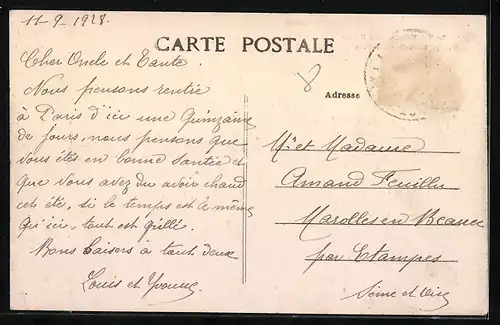 11-9-1928.
CARTE POSTALE
Cher Oncle et Tante.
Nous pensons rentré
à Paris d'ici une Quinzaine
de jours, nous pensons que
vous êtes en bonne santée et
que vous avez du avoir chaud
cet été, si le temps est le même
qu'ici, tout est grillé.
Bons baisers à tout deux
Louis et Yvonne.
Adresse
Mr et Madame
Amand Feuillu
Marolles en Beauce
par Etampes
Seine et Oise